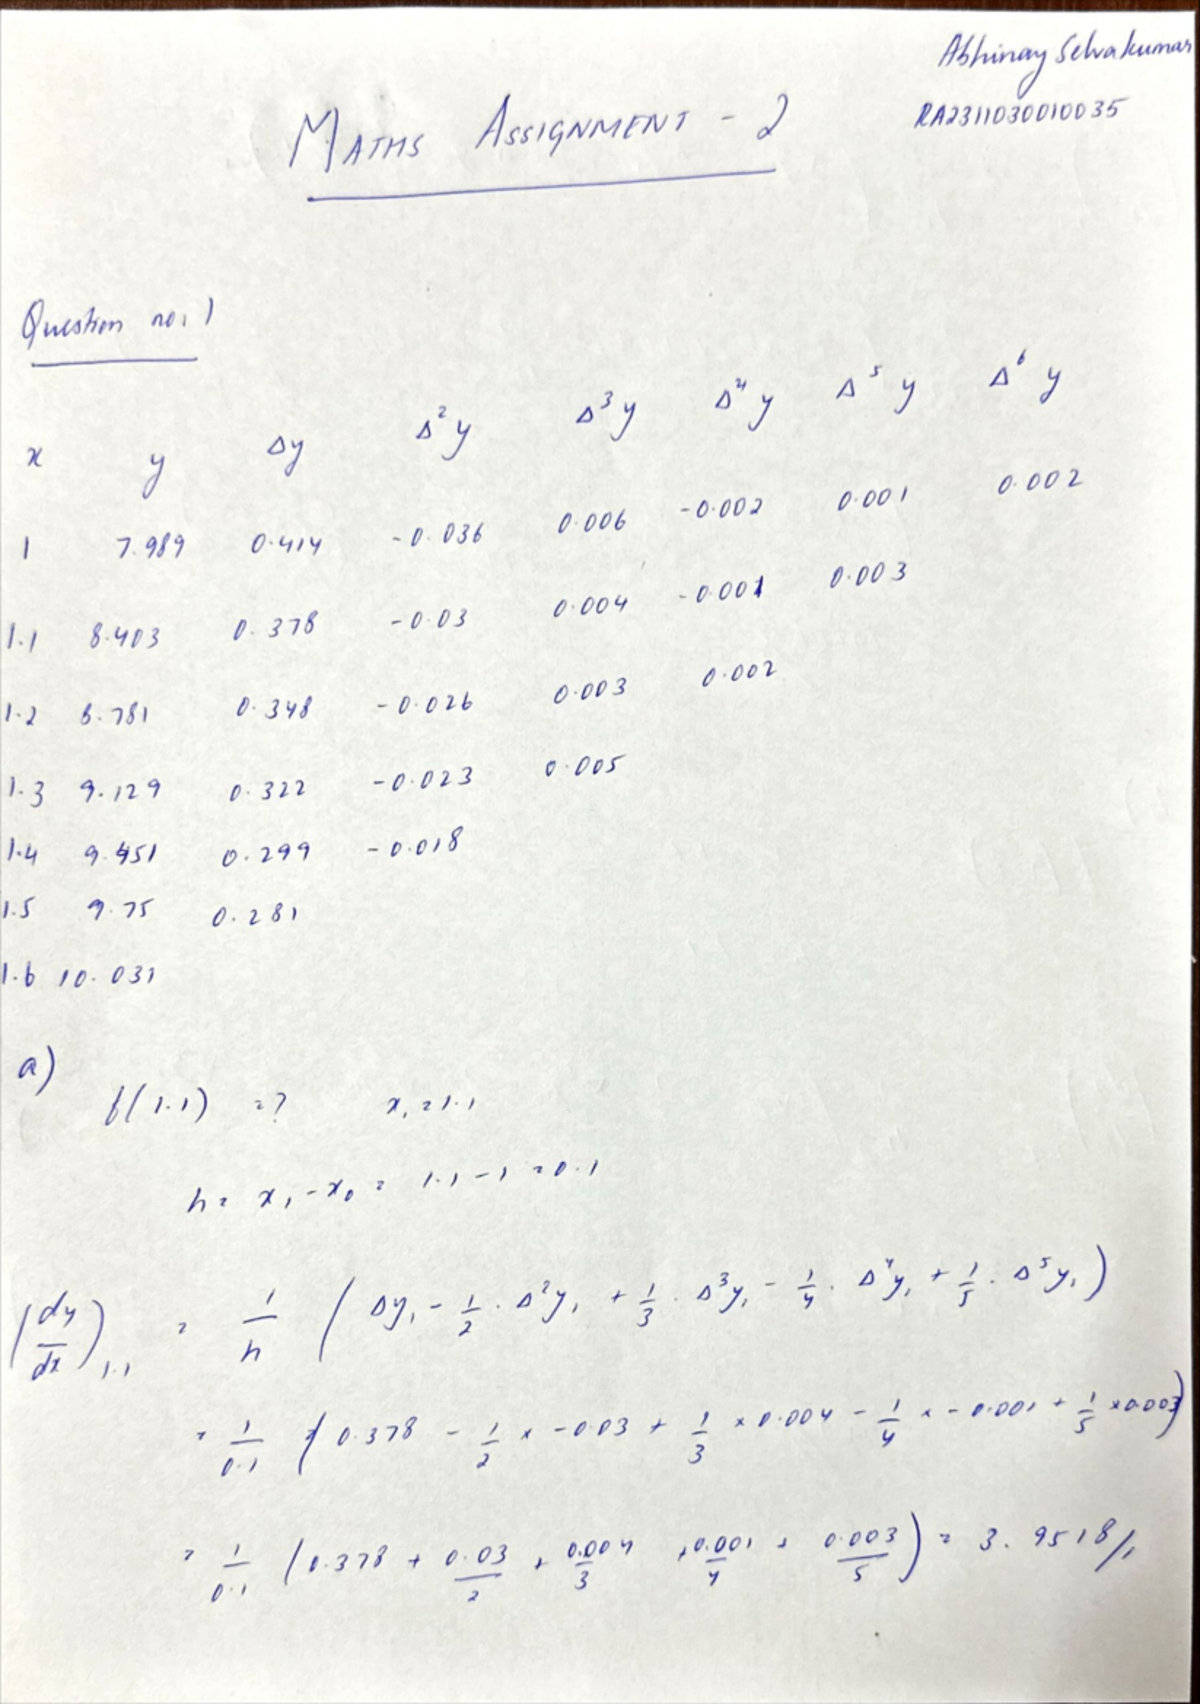 Abhinay Selvakumar
RA2311030010035
MATHS ASSIGNMENT - 2
Question no. 1
x y Δy Δ²y Δ³y Δ⁴y Δ⁵y Δ⁶y
1 7.989 0.414 -0.036 0.006 -0.002 0.001 0.002
1.1 8.403 0.378 -0.03 0.004 -0.001 0.003
1.2 8.781 0.348 -0.026 0.003 0.002
1.3 9.129 0.322 -0.023 0.005
1.4 9.451 0.299 -0.018
1.5 9.75 0.281
1.6 10.031
a)
f(1.1) = ? x₁ = 1.1
h = x₁ - x₀ = 1.1 - 1 = 0.1
(dy/dx)₁.₁ = 1/h (Δy₁ - 1/2 . Δ²y₁ + 1/3 . Δ³y₁ - 1/4 . Δ⁴y₁ + 1/5 . Δ⁵y₁)
= 1/0.1 (0.378 - 1/2 x -0.03 + 1/3 x 0.004 - 1/4 x -0.001 + 1/5 x 0.003)
= 1/0.1 (0.378 + 0.03/2 + 0.004/3 + 0.001/4 + 0.003/5) = 3.9518//